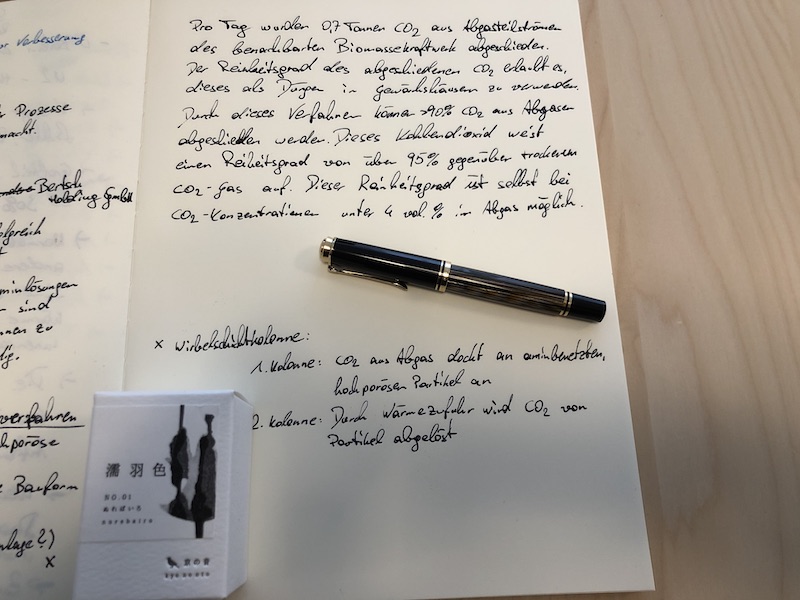 Verbesserung
Prozesse
macht.
Bertsch
Holding GmbH
folgreich
aminlösungen
sind
zu
verfahren
chporöse
Bauform
x
Pro Tag wurden 0,7 Tonnen CO2 aus Abgasteilströmen
des benachbarten Biomassekraftwerk abgeschieden.
Der Reinheitsgrad des abgeschiedenen CO2 erlaubt es,
dieses als Dünger in Gewächshäusern zu verwenden.
Durch dieses Verfahren können >90% CO2 aus Abgasen
abgeschieden werden. Dieses Kohlendioxid weist
einen Reiheitsgrad von über 95% gegenüber trockenem
CO2-Gas auf. Dieser Reinheitsgrad ist selbst bei
CO2-Konzentrationen unter 4 vol.% im Abgas möglich.
x Wirbelschichtkolonne:
1. Kolonne: CO2 aus Abgas dockt an aminbenetzten,
hochporösen Partikel an
2. Kolonne: Durch Wärmezufuhr wird CO2 von
Partikel abgelöst
濡羽色
NO.01
ぬればいろ
nurebairo
京の音
kyo no oto